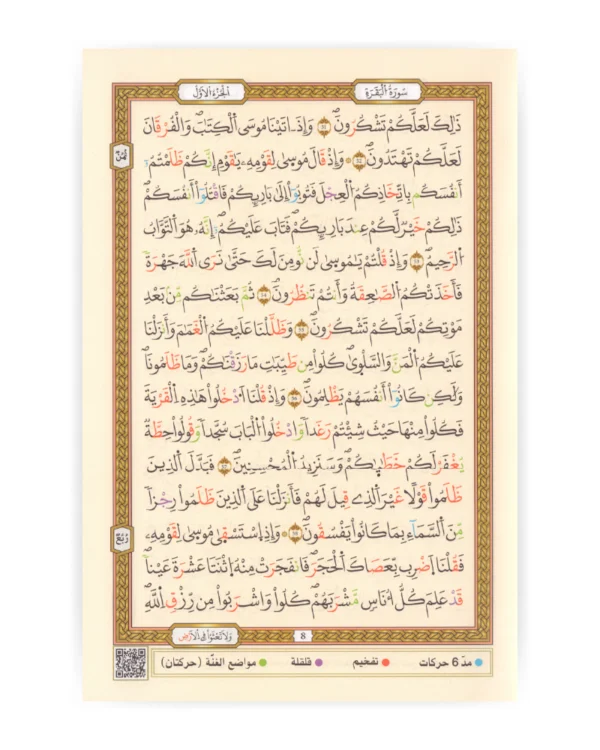 الجُزْءُ الأَوَّلُ
سُورَةُ الْبَقَرَةِ
ذَٰلِكَ لَعَلَّكُمْ تَشْكُرُونَ 51 وَإِذَ اتَيْنَا مُوسَى اَلْكِتَٰبَ وَالْفُرْقَانَ
لَعَلَّكُمْ تَهْتَدُونَ 52 وَإِذْ قَالَ مُوسَىٰ لِقَوْمِهِۦ يَٰقَوْمِ إِنَّكُمْ ظَلَمْتُمُۥٓ
أَنفُسَكُم بِاتِّخَاذِكُمُ الْعِجْلَ فَتُوبُوٓا۟ إِلَىٰ بَارِئِكُمْ فَاقْتُلُوٓا۟ أَنفُسَكُمْ
ذَٰلِكُمْ خَيْرٌ لَّكُمْ عِندَ بَارِئِكُمْ فَتَابَ عَلَيْكُمُۥٓ إِنَّهُۥ هُوَ اَلتَّوَّابُ
اُلرَّحِيمُ 53 وَإِذْ قُلْتُمْ يَٰمُوسَىٰ لَن نُّومِنَ لَكَ حَتَّىٰ نَرَى اَللَّهَ جَهْرَةً
فَأَخَذَتْكُمُ الصَّٰعِقَةُ وَأَنتُمْ تَنظُرُونَ 54 ثُمَّ بَعَثْنَٰكُم مِّنۢ بَعْدِ
مَوْتِكُمْ لَعَلَّكُمْ تَشْكُرُونَ 55 وَظَلَّلْنَا عَلَيْكُمُ الْغَمَٰمَ وَأَنزَلْنَا
عَلَيْكُمُ الْمَنَّ وَالسَّلْوَىٰ كُلُوا۟ مِن طَيِّبَٰتِ مَا رَزَقْنَٰكُمْ وَمَا ظَلَمُونَا
وَلَٰكِن كَانُوٓا۟ أَنفُسَهُمْ يَظْلِمُونَ 56 وَإِذْ قُلْنَا اَدْخُلُوا۟ هَٰذِهِ اِلْقَرْيَةَ
فَكُلُوا۟ مِنْهَا حَيْثُ شِئْتُمْ رَغَدًا وَادْخُلُوا۟ الْبَابَ سُجَّدًا وَقُولُوا۟ حِطَّةٌ
يُغْفَرْ لَكُمْ خَطَٰيَٰكُمْ وَسَنَزِيدُ الْمُحْسِنِينَ 57 فَبَدَّلَ اَلذِينَ
ظَلَمُوا۟ قَوْلًا غَيْرَ اَلذِے قِيلَ لَهُمْ فَأَنزَلْنَا عَلَى اَلذِينَ ظَلَمُوا۟ رِجْزًا
مِّنَ اَلسَّمَآءِ بِمَا كَانُوا۟ يَفْسُقُونَ 58 وَإِذِ اِسْتَسْقَىٰ مُوسَىٰ لِقَوْمِهِۦ
فَقُلْنَا اَضْرِب بِّعَصَاكَ اَلْحَجَرَ فَانفَجَرَتْ مِنْهُ اُثْنَتَا عَشْرَةَ عَيْنًا
قَدْ عَلِمَ كُلُّ أُنَاسٍ مَّشْرَبَهُمْ كُلُوا۟ وَاشْرَبُوا۟ مِن رِّزْقِ اِللَّهِ
ثُمُنٌ
رُبُعٌ
8
وَلَا تَعْثَوْا۟ فِے اِلَارْضِ
مدّ 6 حركات
تفخيم
قلقلة
مواضع الغنّة (حركتان)